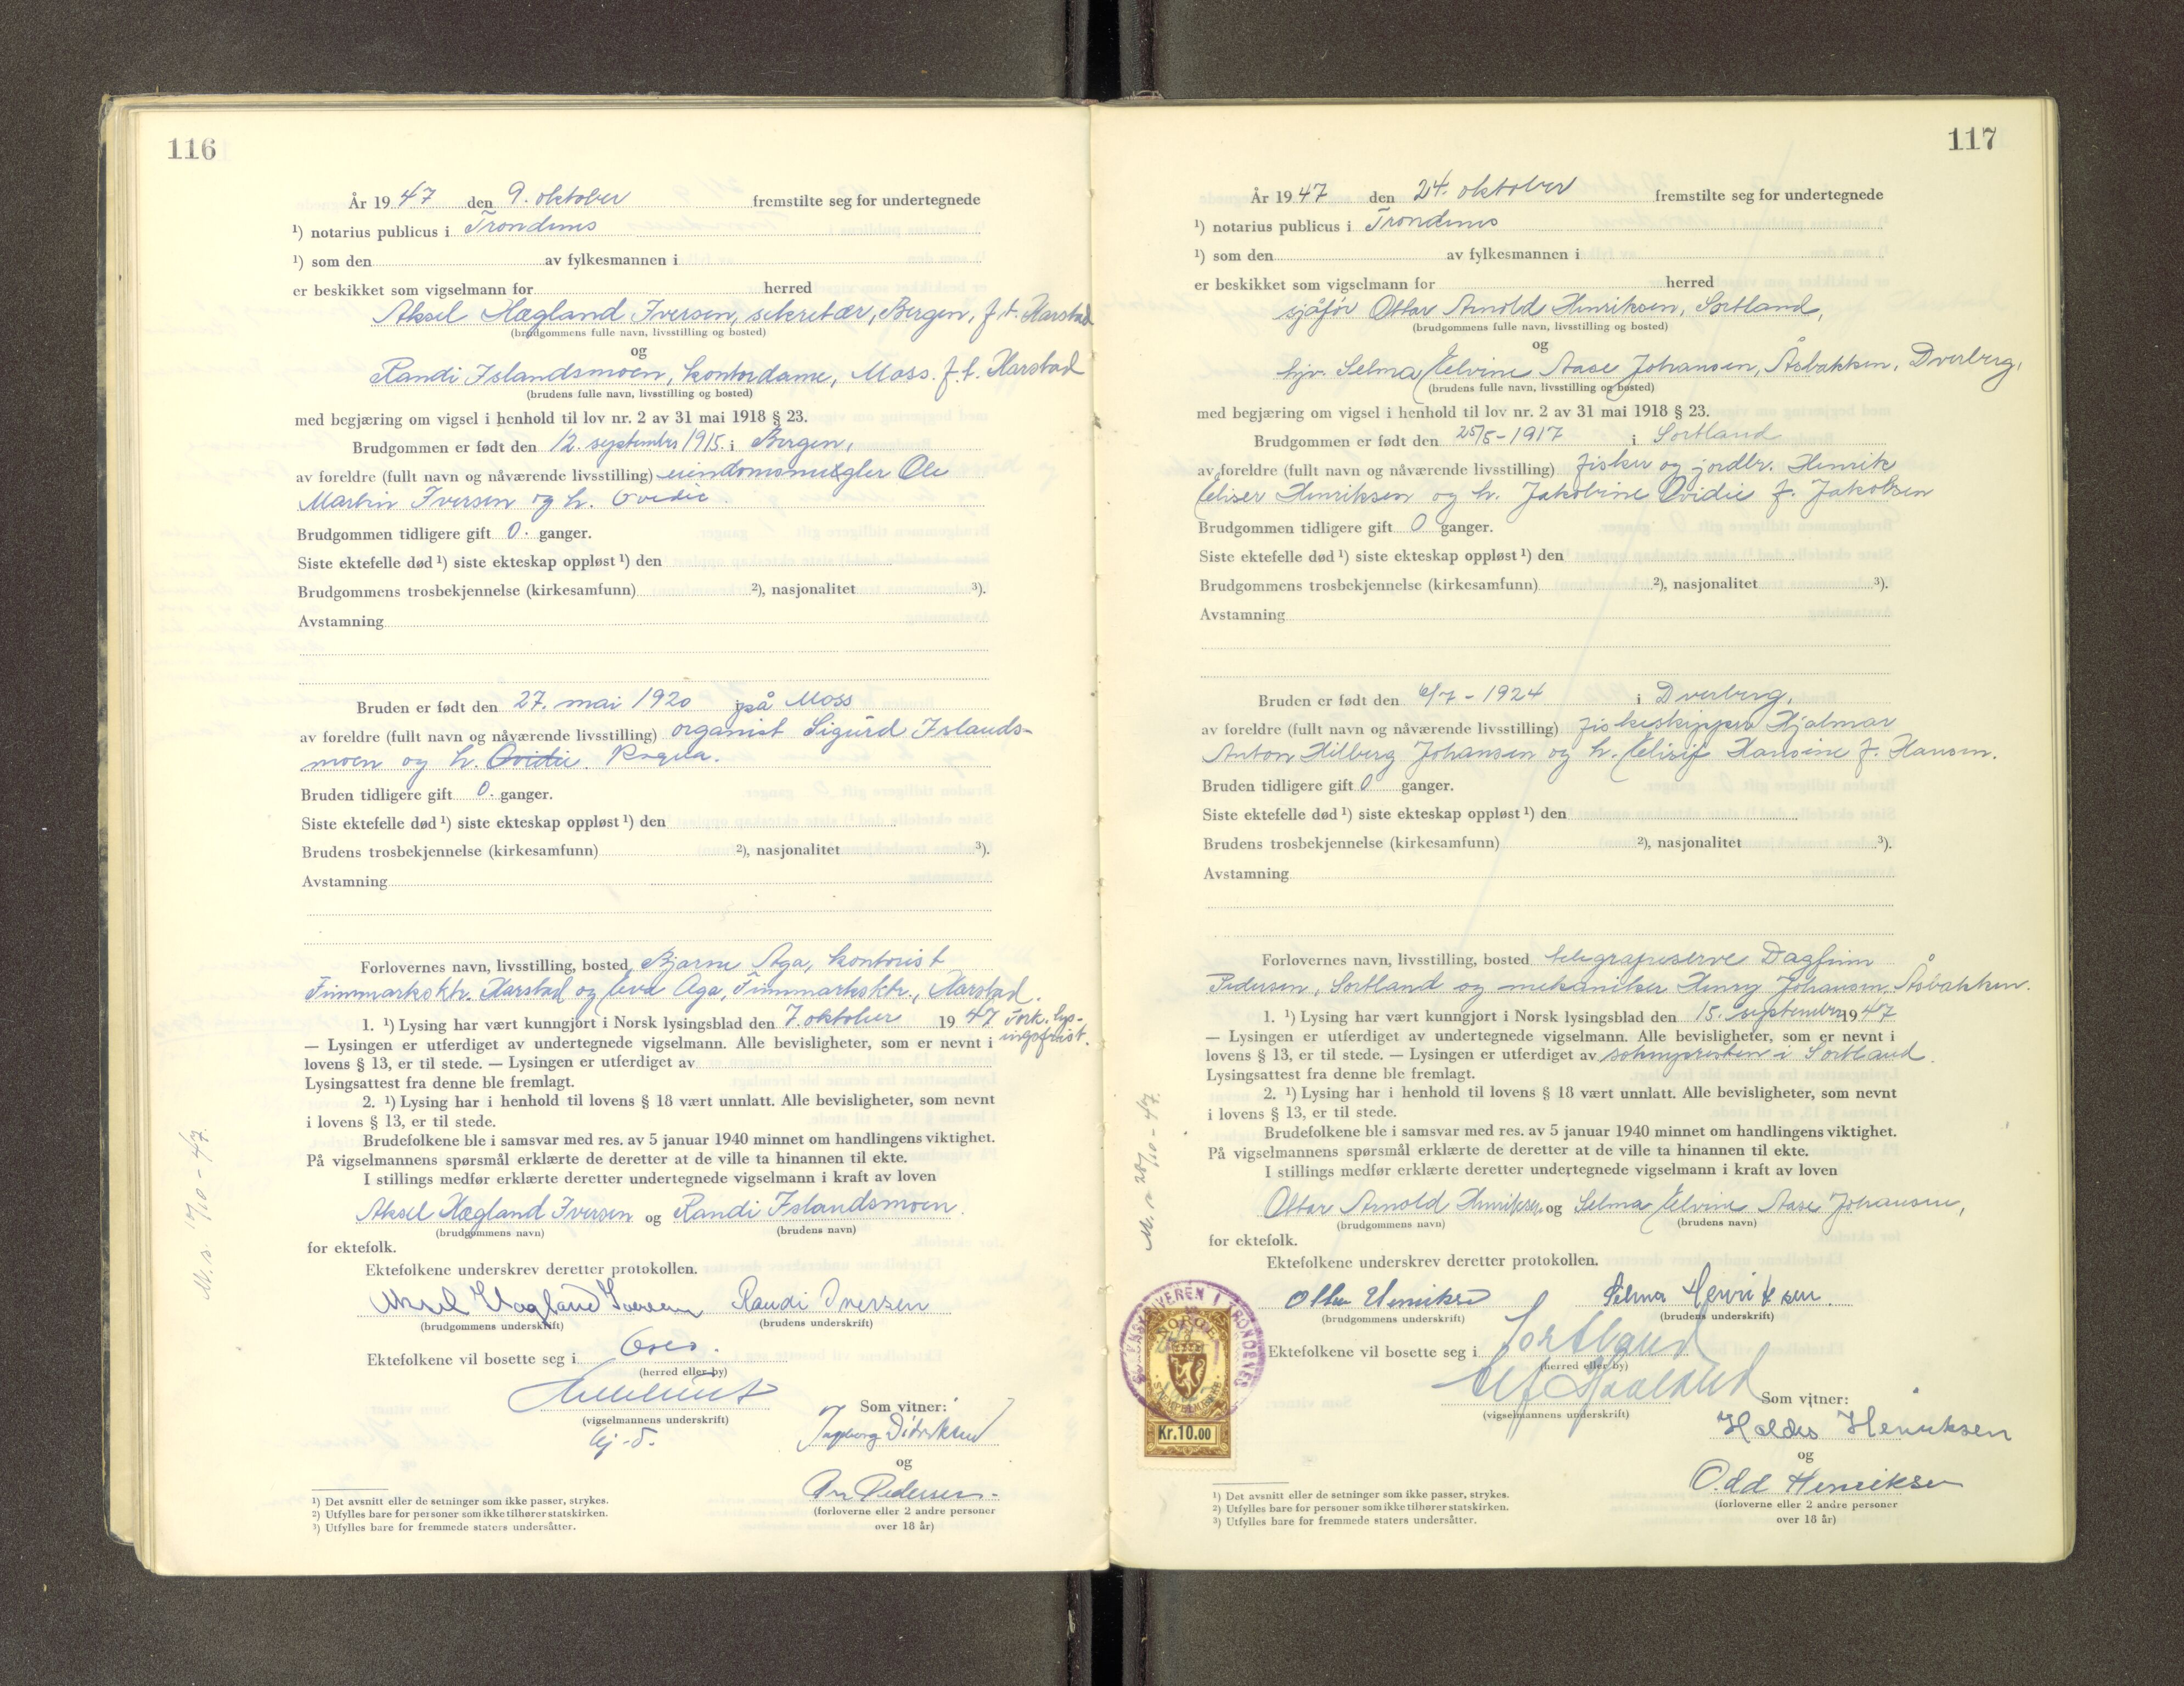 116
År 1947 den 9. oktober fremstilte seg for undertegnede
¹) notarius publicus i Trondenes
¹) som den av fylkesmannen i
er beskikket som vigselmann for herred
Aksel Hægland Iversen, sekretær, Bergen, f.t. Harstad
(brudgommens fulle navn, livsstilling og bosted)
og
Randi Islandsmoen, kontordame, Moss. f.t. Harstad
(brudens fulle navn, livsstilling og bosted)
med begjæring om vigsel i henhold til lov nr. 2 av 31 mai 1918 § 23.
Brudgommen er født den 12. september 1915. i Bergen,
av foreldre (fullt navn og nåværende livsstilling) eiendomsmegler Ole
Martin Iversen og h. Ovidie.
Brudgommen tidligere gift 0. ganger.
Siste ektefelle død ¹) siste ekteskap oppløst ¹) den
Brudgommens trosbekjennelse (kirkesamfunn) ²), nasjonalitet ³).
Avstamning
Bruden er født den 27. mai 1920 på Moss
av foreldre (fullt navn og nåværende livsstilling) organist Sigurd Islands-
moen og h. Ovidie. Ragna.
Bruden tidligere gift 0. ganger.
Siste ektefelle død ¹) siste ekteskap oppløst ¹) den
Brudens trosbekjennelse (kirkesamfunn) ²), nasjonalitet ³).
Avstamning
Forlovernes navn, livsstilling, bosted Bjarne Aga, kontorist
Finnmarksktr. Harstad og Eva Aga, Finnmarksktr., Harstad.
1. ¹) Lysing har vært kunngjort i Norsk lysingsblad den 7. oktober 1947 Fork. lys-
ingsfrist.
— Lysingen er utferdiget av undertegnede vigselmann. Alle bevisligheter, som er nevnt i
lovens § 13, er til stede. — Lysingen er utferdiget av
Lysingsattest fra denne ble fremlagt.
2. ¹) Lysing har i henhold til lovens § 18 vært unnlatt. Alle bevisligheter, som nevnt
i lovens § 13, er til stede.
Brudefolkene ble i samsvar med res. av 5 januar 1940 minnet om handlingens viktighet.
På vigselmannens spørsmål erklærte de deretter at de ville ta hinannen til ekte.
I stillings medfør erklærte deretter undertegnede vigselmann i kraft av loven
Aksel Hægland Iversen og Randi Islandsmoen.
(brudgommens navn) (brudens navn)
for ektefolk.
Ektefolkene underskrev deretter protokollen.
Aksel Hægland Iversen Randi Iversen
(brudgommens underskrift) (brudens underskrift)
Ektefolkene vil bosette seg i Oslo.
(herred eller by)
(vigselmannens underskrift)
Som vitner:
Ingeborg Didriksen
og
Pedersen
(forloverne eller 2 andre personer
over 18 år)
¹) Det avsnitt eller de setninger som ikke passer, strykes.
²) Utfylles bare for personer som ikke tilhører statskirken.
³) Utfylles bare for fremmede staters undersåtter.
117
År 1947 den 24. oktober fremstilte seg for undertegnede
¹) notarius publicus i Trondenes
¹) som den av fylkesmannen i
er beskikket som vigselmann for herred
sjåfør Ottar Arnold Henriksen, Sortland,
(brudgommens fulle navn, livsstilling og bosted)
og
hjv. Selma Elvine Aase Johansen, Åsbakken, Dverberg,
(brudens fulle navn, livsstilling og bosted)
med begjæring om vigsel i henhold til lov nr. 2 av 31 mai 1918 § 23.
Brudgommen er født den 25/5-1917 i Sortland
av foreldre (fullt navn og nåværende livsstilling) fisker og jordbr. Henrik
Eliser Henriksen og h. Jakobine Ovidie f. Jakobsen
Brudgommen tidligere gift 0 ganger.
Siste ektefelle død ¹) siste ekteskap oppløst ¹) den
Brudgommens trosbekjennelse (kirkesamfunn) ²), nasjonalitet ³).
Avstamning
Bruden er født den 6/7 - 1924 i Dverberg,
av foreldre (fullt navn og nåværende livsstilling) fiskeskipper Hjalmar
Anton Hilberg Johansen og h. Elisif Hansine f. Hansen.
Bruden tidligere gift 0 ganger.
Siste ektefelle død ¹) siste ekteskap oppløst ¹) den
Brudens trosbekjennelse (kirkesamfunn) ²), nasjonalitet ³).
Avstamning
Forlovernes navn, livsstilling, bosted telegrafreserve Dagfinn
Pedersen, Sortland og mekaniker Henry Johansen. Åsbakken.
1. ¹) Lysing har vært kunngjort i Norsk lysingsblad den 15. september 1947
— Lysingen er utferdiget av undertegnede vigselmann. Alle bevisligheter, som er nevnt i
lovens § 13, er til stede. — Lysingen er utferdiget av soknepresten i Sortland.
Lysingsattest fra denne ble fremlagt.
2. ¹) Lysing har i henhold til lovens § 18 vært unnlatt. Alle bevisligheter, som nevnt
i lovens § 13, er til stede.
Brudefolkene ble i samsvar med res. av 5 januar 1940 minnet om handlingens viktighet.
På vigselmannens spørsmål erklærte de deretter at de ville ta hinannen til ekte.
I stillings medfør erklærte deretter undertegnede vigselmann i kraft av loven
Ottar Arnold Henriksen og Selma Elvine Aase Johansen,
(brudgommens navn) (brudens navn)
for ektefolk.
Ektefolkene underskrev deretter protokollen.
Ottar Henriksen Selma Henriksen.
(brudgommens underskrift) (brudens underskrift)
Ektefolkene vil bosette seg i Sortland
(herred eller by)
Alf Haaland
(vigselmannens underskrift)
NORGE
Kr.10.00
Som vitner:
Haldis Henriksen
og
Odd Henriksen
(forloverne eller 2 andre personer
over 18 år)
¹) Det avsnitt eller de setninger som ikke passer, strykes.
²) Utfylles bare for personer som ikke tilhører statskirken.
³) Utfylles bare for fremmede staters undersåtter.